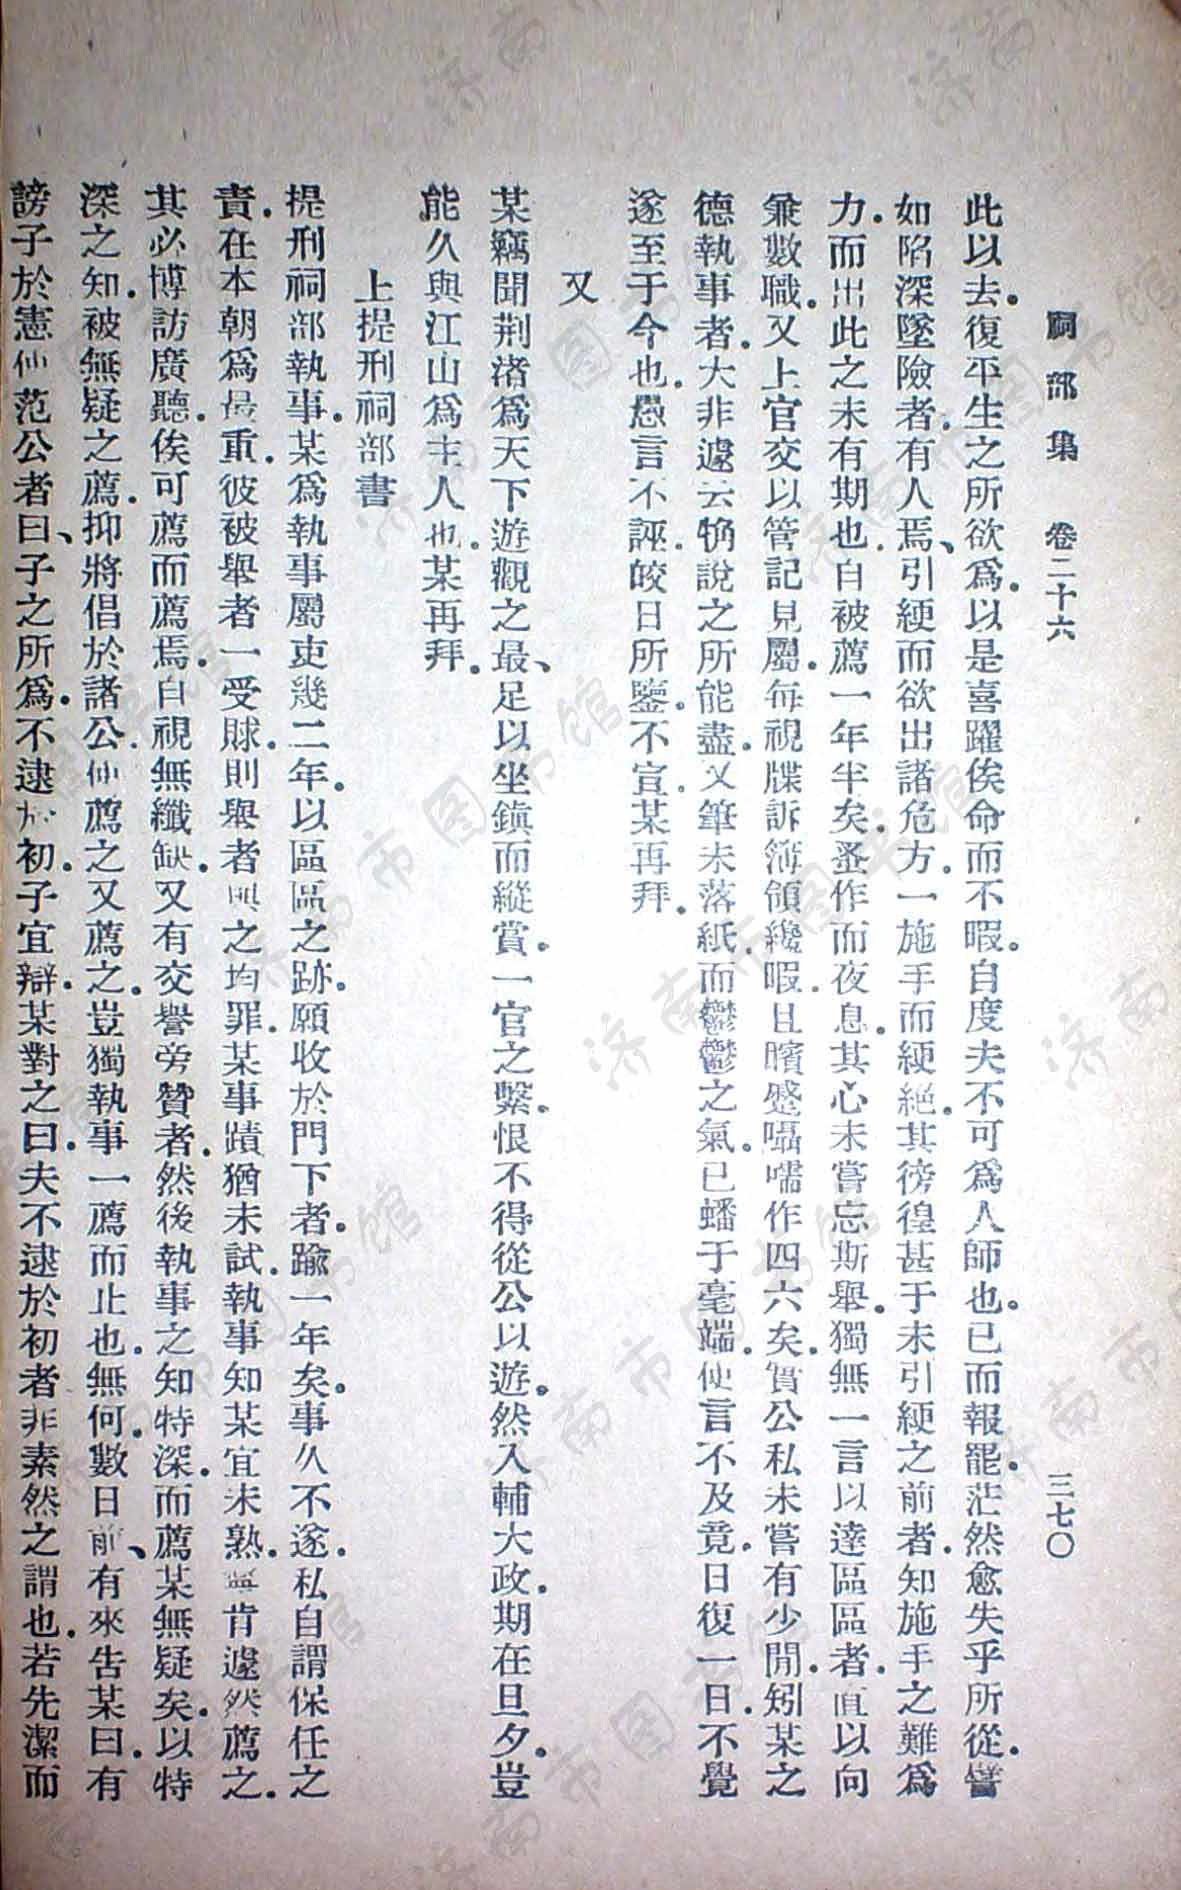 祠部集　卷二十六　三七〇
此以去。復平生之所欲爲。以是喜躍俟命而不暇。自度夫不可爲人師也。已而報罷。茫然愈失乎所從。譬
如陷深墜險者。有人焉、引綆而欲出諸危方。一施手而綆絕。其徬徨甚于未引綆之前者。知施手之難爲
力。而出此之未有期也。自被薦一年半矣。蚤作而夜息。其心未嘗忘斯舉。獨無一言以達區區者。直以向
兼數職。又上官交以管記見屬。每視牒訴簿領纔暇。且矉蹙囁嚅作四六矣。實公私未嘗有少閒。矧某之
德執事者。大非遽云觕說之所能盡。又筆未落紙。而鬱鬱之氣。已蟠于毫端。使言不及竟。日復一日。不覺
遂至于今也。愚言不誣。皎日所鑒。不宣。某再拜。
又
某竊聞荆渚爲天下遊觀之最、足以坐鎮而縱賞。一官之繫。恨不得從公以遊。然入輔大政。期在旦夕。豈
能久與江山爲主人也。某再拜。
上提刑祠部書
提刑祠部執事。某爲執事屬吏幾二年。以區區之跡。願收於門下者。踰一年矣。事久不遂。私自謂保任之
責。在本朝爲最重。彼被舉者一受賕。則舉者與之均罪。某事蹟猶未試。執事知某宜未熟。寧肯遽然薦之。
其必博訪廣聽。俟可薦而薦焉。自視無纖缺。又有交譽旁贊者。然後執事之知特深。而薦某無疑矣。以特
深之知。被無疑之薦。抑將倡於諸公。俾薦之又薦之。豈獨執事一薦而止也。無何。數日前、有來告某曰。有
謗子於憲使范公者曰、子之所爲。不逮於初。子宜辯。某對之曰。夫不逮於初者。非素然之謂也。若先潔而